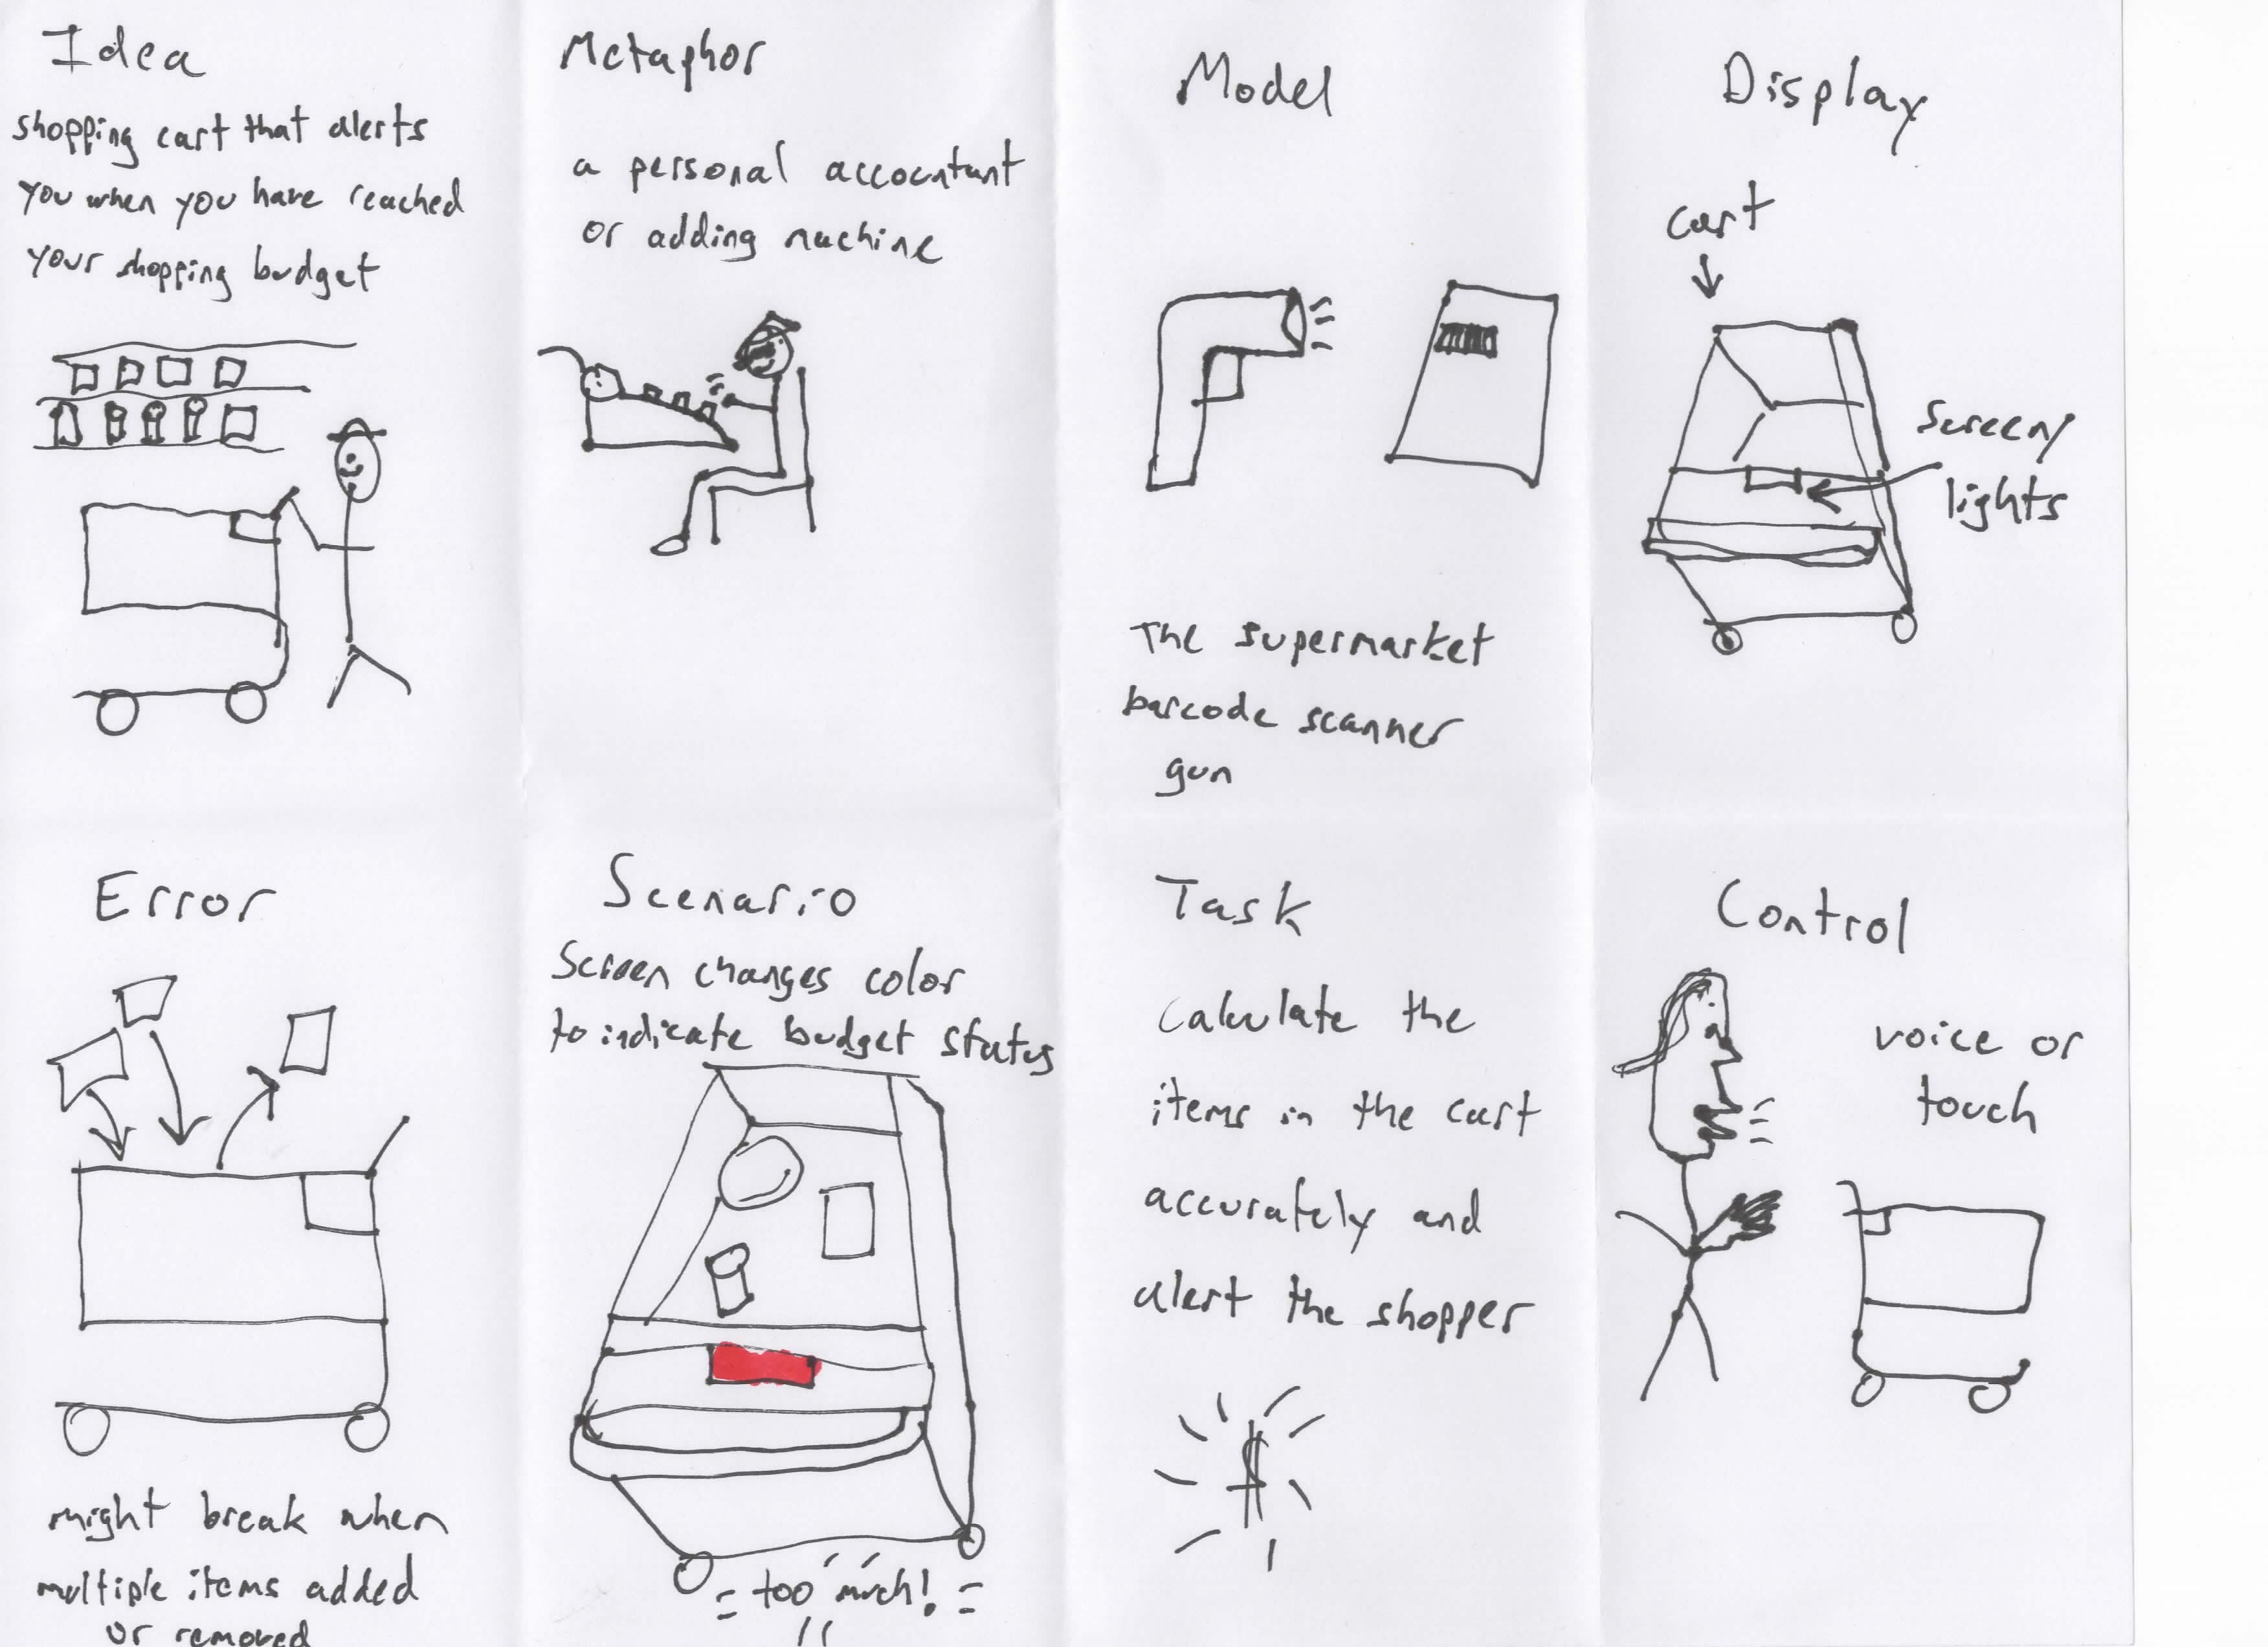 Idea
shopping cart that alerts
you when you have reached
your shopping budget
Metaphor
a personal accountant
or adding machine
Model
The supermarket
barcode scanner
gun
Display
cart
screen/
lights
Error
might break when
multiple items added
or removed
Scenario
Screen changes color
to indicate budget status
too much!
Task
calculate the
items in the cart
accurately and
alert the shopper
$
Control
voice or
touch